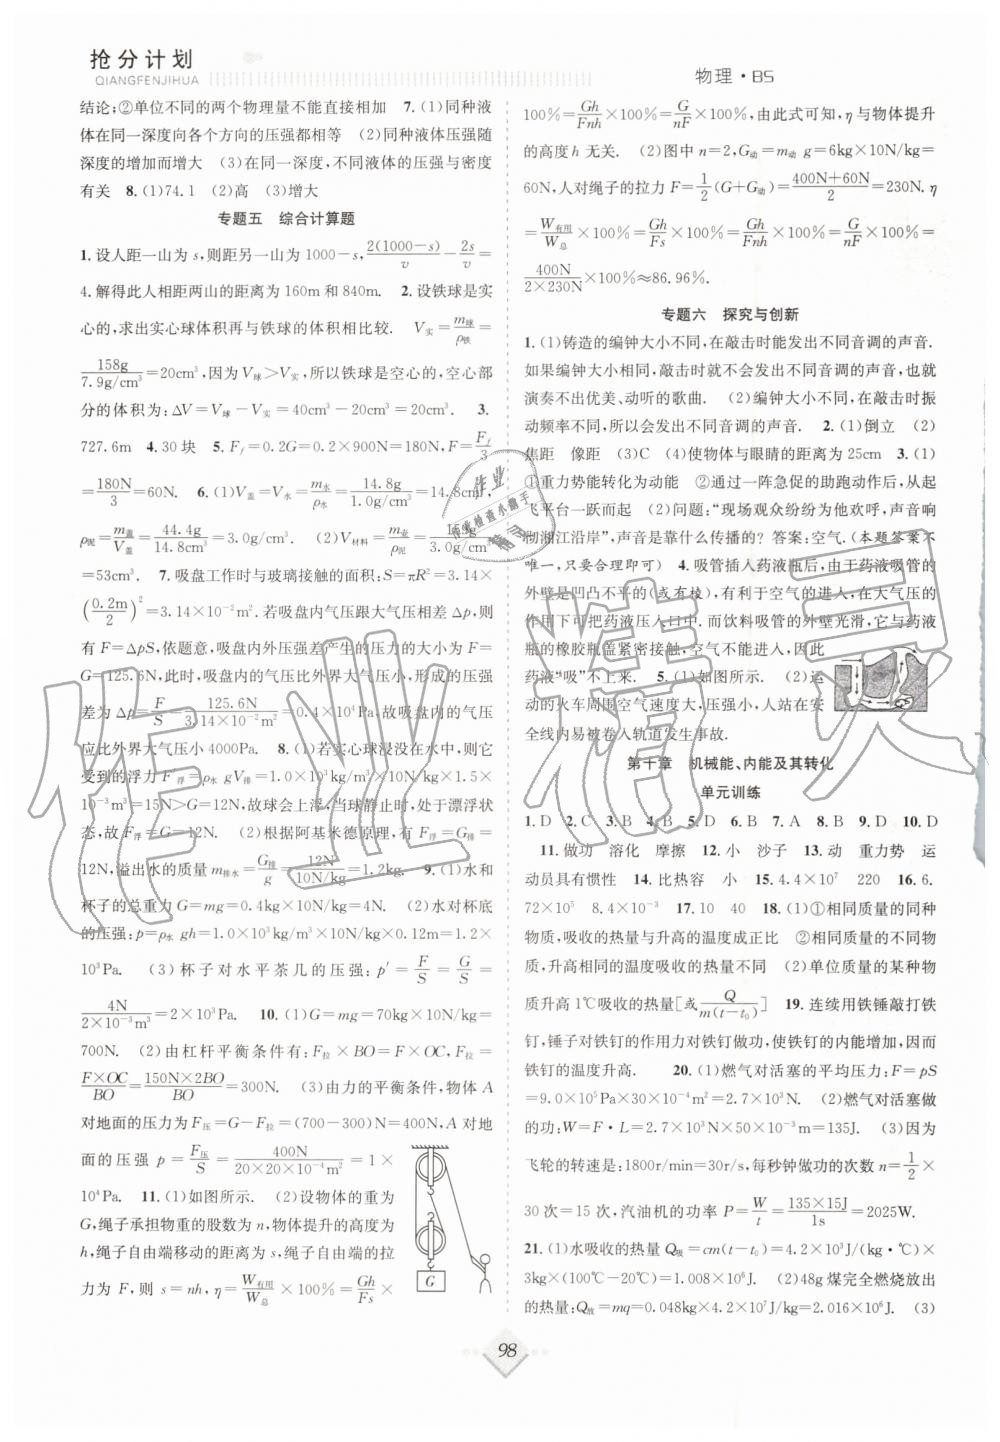 抢分计划
QIANGFENJIHUA
物理·BS
结论;②单位不同的两个物理量不能直接相加　7.(1)同种液
体在同一深度向各个方向的压强都相等　(2)同种液体压强随
深度的增加而增大　(3)在同一深度,不同液体的压强与密度
有关　8.(1)74.1　(2)高　(3)增大
专题五　综合计算题
1.设人距一山为 s,则距另一山为 1000-s, 2(1000-s)/v - 2s/v =
4.解得此人相距两山的距离为 160m 和 840m.　2.设铁球是实
心的,求出实心球体积再与铁球的体积相比较.　V实=m球/ρ铁=
158g/7.9g/cm³=20cm³,因为 V球>V实,所以铁球是空心的,空心部
分的体积为:ΔV=V球-V实=40cm³-20cm³=20cm³.　3.
727.6m　4.30 块　5.Ff=0.2G=0.2×900N=180N,F=Ff/3
=180N/3=60N.　6.(1)V盖=V水=m水/ρ水=14.8g/1.0g/cm³=14.8cm³,
ρ泥=m盖/V盖=44.4g/14.8cm³=3.0g/cm³.　(2)V材料=m壶/ρ泥=159g/3.0g/cm³
=53cm³.　7.吸盘工作时与玻璃接触的面积:S=πR²=3.14×
(0.2m/2)²=3.14×10⁻²m².若吸盘内气压跟大气压相差 Δp,则
有 F=ΔpS,依题意,吸盘内外压强差产生的压力的大小为 F=
G=125.6N,此时,吸盘内的气压比外界大气压小,形成的压强
差为 Δp=F/S=125.6N/3.14×10⁻²m²=0.4×10⁴Pa.故吸盘内的气压
应比外界大气压小 4000Pa.　8.(1)若实心球浸没在水中,则它
受到的浮力 F′浮=ρ水 gV排=1.0×10³kg/m³×10N/kg×1.5×
10⁻³m³=15N>G=12N,故球会上浮,当球静止时,处于漂浮状
态,故 F浮=G=12N.　(2)根据阿基米德原理,有 F浮=G排=
12N,溢出水的质量 m排水=G排/g=12N/10N/kg=1.2kg.　9.(1)水和
杯子的总重力 G=mg=0.4kg×10N/kg=4N.　(2)水对杯底
的压强:p=ρ水 gh=1.0×10³kg/m³×10N/kg×0.12m=1.2×
10³Pa.　(3)杯子对水平茶几的压强:p′=F/S=G/S=
4N/2×10⁻³m³=2×10³Pa.　10.(1)G=mg=70kg×10N/kg=
700N.　(2)由杠杆平衡条件有:F拉×BO=F×OC,F拉=
F×OC/BO=150N×2BO/BO=300N.　(3)由力的平衡条件,物体 A
对地面的压力为 F压=G-F拉=(700-300)N=400N,A 对地
面的压强 p=F压/S=400N/20×20×10⁻⁴m²=1×
10⁴Pa.　11.(1)如图所示.　(2)设物体的重为
G,绳子承担物重的股数为 n,物体提升的高度为
h,绳子自由端移动的距离为 s,绳子自由端的拉
力为 F,则 s=nh,η=W有用/W总×100%=Gh/Fs×
G
100%=Gh/Fnh×100%=G/nF×100%,由此式可知,η与物体提升
的高度 h 无关.　(2)图中 n=2,G动=m动 g=6kg×10N/kg=
60N,人对绳子的拉力 F=1/2(G+G动)=400N+60N/2=230N. η
=W有用/W总×100%=Gh/Fs×100%=Gh/Fnh×100%=G/nF×100%=
400N/2×230N×100%≈86.96%.
专题六　探究与创新
1.(1)铸造的编钟大小不同,在敲击时能发出不同音调的声音.
如果编钟大小相同,敲击时就不会发出不同音调的声音,也就
演奏不出优美、动听的歌曲.　(2)编钟大小不同,在敲击时振
动频率不同,所以发出不同音调的声音.　2.(1)倒立　(2)
焦距　像距　(3)C　(4)使物体与眼睛的距离为 25cm　3.(1)
①重力势能转化为动能　②通过一阵急促的助跑动作后,从起
飞平台一跃而起　(2)问题:“现场观众纷纷为他欢呼,声音响
彻湘江沿岸”,声音是靠什么传播的?答案:空气.(本题答案不
唯一,只要合理即可)　4.吸管插入药液瓶后,由于药液吸管的
外壁是凹凸不平的(或有棱),有利于空气的进入,在大气压的
作用下可把药液压入口中.而饮料吸管的外壁光滑,它与药液
瓶的橡胶瓶盖紧密接触,空气不能进入,因此
药液“吸”不上来.　5.(1)如图所示.　(2)运
动的火车周围空气速度大,压强小,人站在安
全线内易被卷入轨道发生事故.
第十章　机械能、内能及其转化
单元训练
1.D　2.C　3.B　4.B　5.D　6.B　7.A　8.B　9.D　10.D
11.做功　溶化　摩擦　12.小　沙子　13.动　重力势　运
动员具有惯性　14.比热容　小　15.4.4×10⁷　220　16.6.
72×10⁵　8.4×10⁻³　17.10　40　18.(1)①相同质量的同种
物质,吸收的热量与升高的温度成正比　②相同质量的不同物
质,升高相同的温度吸收的热量不同　(2)单位质量的某种物
质升高 1℃吸收的热量[或Q/m(t-t₀)]　19.连续用铁锤敲打铁
钉,锤子对铁钉的作用力对铁钉做功,使铁钉的内能增加,因而
铁钉的温度升高.　20.(1)燃气对活塞的平均压力:F=pS
=9.0×10⁵Pa×30×10⁻⁴m²=2.7×10³N.　(2)燃气对活塞做
的功:W=F·L=2.7×10³N×50×10⁻³m=135J.　(3)因为
飞轮的转速是:1800r/min=30r/s,每秒钟做功的次数 n=1/2×
30 次=15 次,汽油机的功率 P=W/t=135×15J/1s=2025W.
21.(1)水吸收的热量 Q吸=cm(t-t₀)=4.2×10³J/(kg·℃)×
3kg×(100℃-20℃)=1.008×10⁶J.　(2)48g 煤完全燃烧放出
的热量:Q放=mq=0.048kg×4.2×10⁷J/kg=2.016×10⁶J.　(3)
98
作业精灵